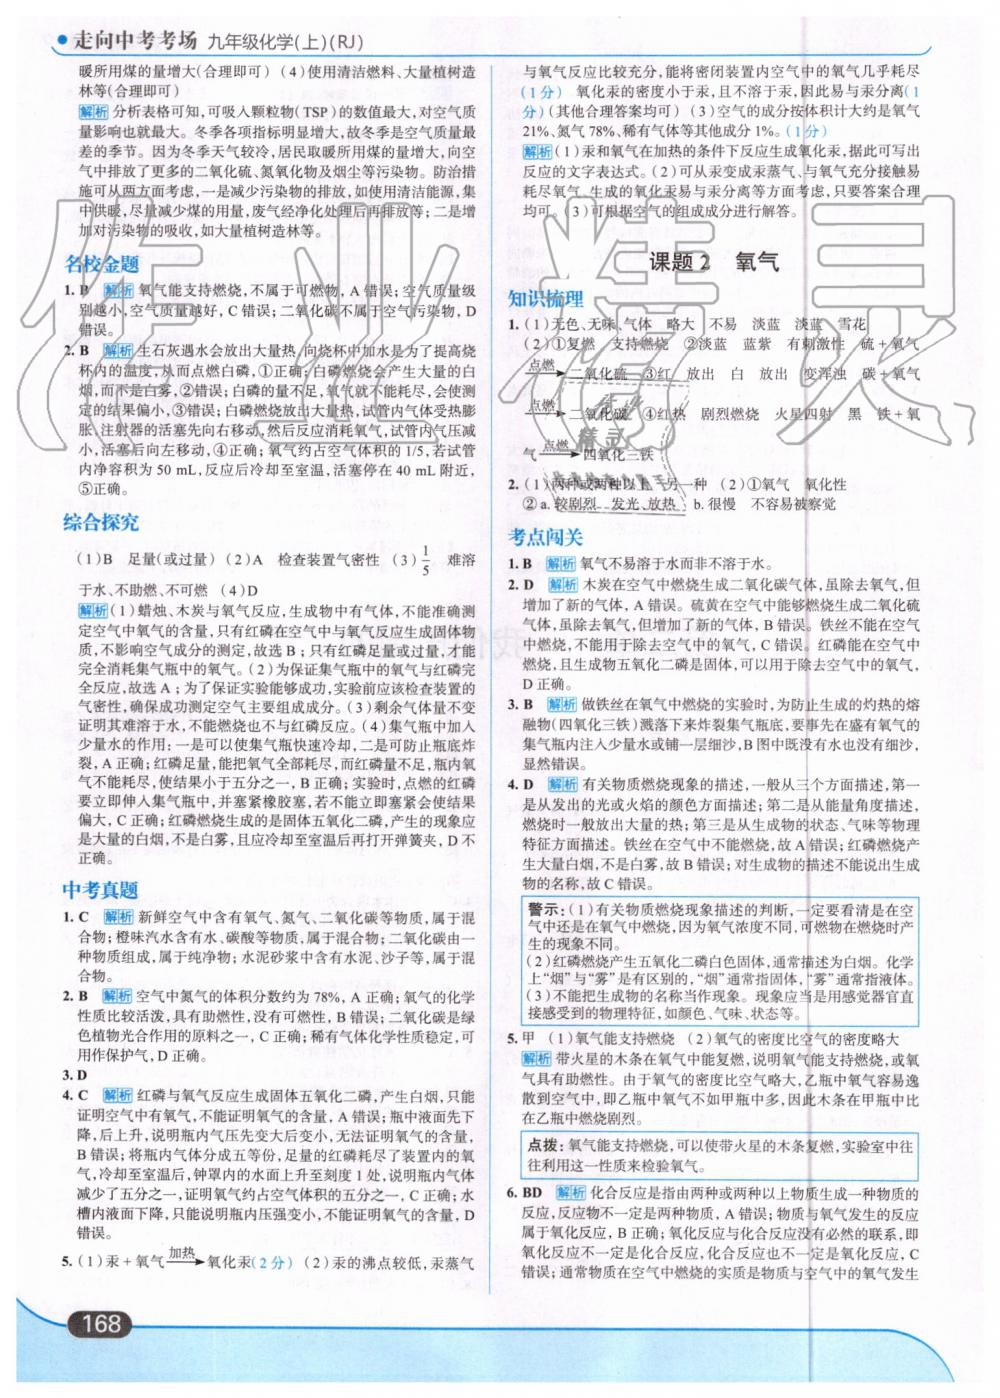 走向中考考场 九年级化学(上)(RJ)
暖所用煤的量增大(合理即可) (4)使用清洁燃料、大量植树造
林等(合理即可)
解析 分析表格可知,可吸入颗粒物(TSP)的数值最大,对空气质
量影响也就最大。冬季各项指标明显增大,故冬季是空气质量最
差的季节。因为冬季天气较冷,居民取暖所用煤的量增大,向空
气中排放了更多的二氧化硫、氮氧化物及烟尘等污染物。防治措
施可从两方面考虑,一是减少污染物的排放,如使用清洁能源,集
中供暖,尽量减少煤的用量,废气经净化处理后再排放等;二是增
加对污染物的吸收,如大量植树造林等。
名校金题
1. B 解析 氧气能支持燃烧,不属于可燃物,A 错误;空气质量级
别越小,空气质量越好,C 错误;二氧化碳不属于空气污染物,D
错误。
2. B 解析 生石灰遇水会放出大量热,向烧杯中加水是为了提高烧
杯内的温度,从而点燃白磷,①正确;白磷燃烧会产生大量的白
烟,而不是白雾,②错误;白磷的量不足,氧气就不能耗尽,会使测
定的结果偏小,③错误;白磷燃烧放出大量热,试管内气体受热膨
胀,注射器的活塞先向右移动,然后反应消耗氧气,试管内气压减
小,活塞后向左移动,④正确;氧气约占空气体积的 1/5,若试管
内净容积为 50 mL,反应后冷却至室温,活塞停在 40 mL 附近,
⑤正确。
综合探究
(1)B 足量(或过量) (2)A 检查装置气密性 (3)1/5 难溶
于水、不助燃、不可燃 (4)D
解析 (1)蜡烛、木炭与氧气反应,生成物中有气体,不能准确测
定空气中氧气的含量,只有红磷在空气中与氧气反应生成固体物
质,不影响空气成分的测定,故选 B;只有红磷足量或过量,才能
完全消耗集气瓶中的氧气。(2)为保证集气瓶中的氧气与红磷完
全反应,故选 A;为了保证实验能够成功,实验前应该检查装置的
气密性,确保成功测定空气主要组成成分。(3)剩余气体量不变
证明其难溶于水,不能燃烧也不与红磷反应。(4)集气瓶中加入
少量水的作用:一是可以使集气瓶快速冷却,二是可防止瓶底炸
裂,A 正确;红磷足量,能把氧气全部耗尽,而红磷量不足,瓶内氧
气不能耗尽,使结果小于五分之一,B 正确;实验时,点燃的红磷
要立即伸入集气瓶中,并塞紧橡胶塞,若不能立即塞紧会使结果
偏大,C 正确;红磷燃烧生成的是固体五氧化二磷,产生的现象应
是大量的白烟,不是白雾,且应冷却至室温后再打开弹簧夹,D 不
正确。
中考真题
1. C 解析 新鲜空气中含有氧气、氮气、二氧化碳等物质,属于混
合物;橙味汽水含有水、碳酸等物质,属于混合物;二氧化碳由一
种物质组成,属于纯净物;水泥砂浆中含有水泥、沙子等,属于混
合物。
2. B 解析 空气中氮气的体积分数约为 78%,A 正确;氧气的化学
性质比较活泼,具有助燃性,没有可燃性,B 错误;二氧化碳是绿
色植物光合作用的原料之一,C 正确;稀有气体化学性质稳定,可
用作保护气,D 正确。
3. D
4. C 解析 红磷与氧气反应生成固体五氧化二磷,产生白烟,只能
证明空气中有氧气,不能证明氧气的含量,A 错误;瓶中液面先下
降,后上升,说明瓶内气压先变大后变小,无法证明氧气的含量,
B 错误;将瓶内气体分成五等份,足量的红磷耗尽了装置内的氧
气,冷却至室温后,钟罩内的水面上升至刻度 1 处,说明瓶内气体
减少了五分之一,证明氧气约占空气体积的五分之一,C 正确;水
槽内液面下降,只能说明瓶内压强变小,不能证明氧气的含量,D
错误。
5. (1)汞+氧气 加热→ 氧化汞(2 分) (2)汞的沸点较低,汞蒸气
与氧气反应比较充分,能将密闭装置内空气中的氧气几乎耗尽
(1 分) 氧化汞的密度小于汞,且不溶于汞,因此易与汞分离(1
分)(其他合理答案均可) (3)空气的成分按体积计大约是氧气
21%、氮气 78%、稀有气体等其他成分 1%。(1 分)
解析 (1)汞和氧气在加热的条件下反应生成氧化汞,据此可写出
反应的文字表达式。(2)可从汞变成汞蒸气、与氧气充分接触易
耗尽氧气,生成的氧化汞易与汞分离等方面考虑,只要答案合理
均可。(3)可根据空气的组成成分进行解答。
课题 2 氧气
知识梳理
1. (1)无色、无味 气体 略大 不易 淡蓝 淡蓝 雪花
(2)①复燃 支持燃烧 ②淡蓝 蓝紫 有刺激性 硫+氧气
点燃→ 二氧化硫 ③红 放出 白 放出 变浑浊 碳+氧气
点燃→ 二氧化碳 ④红热 剧烈燃烧 火星四射 黑 铁+氧
气 点燃→ 四氧化三铁
2. (1)两种或两种以上 另一种 (2)①氧气 氧化性
② a. 较剧烈 发光、放热 b. 很慢 不容易被察觉
考点闯关
1. B 解析 氧气不易溶于水而非不溶于水。
2. D 解析 木炭在空气中燃烧生成二氧化碳气体,虽除去氧气,但
增加了新的气体,A 错误。硫黄在空气中能够燃烧生成二氧化硫
气体,虽除去氧气,但增加了新的气体,B 错误。铁丝不能在空气
中燃烧,不能用于除去空气中的氧气,C 错误。红磷能在空气中
燃烧,且生成物五氧化二磷是固体,可以用于除去空气中的氧气,
D 正确。
3. B 解析 做铁丝在氧气中燃烧的实验时,为防止生成的灼热的熔
融物(四氧化三铁)溅落下来炸裂集气瓶底,要事先在盛有氧气的
集气瓶内注入少量水或铺一层细沙,B 图中既没有水也没有细沙,
显然错误。
4. D 解析 有关物质燃烧现象的描述,一般从三个方面描述,第一
是从发出的光或火焰的颜色方面描述;第二是从能量角度描述,
燃烧时一般放出大量的热;第三是从生成物的状态、气味等物理
特征方面描述。铁丝在空气中不能燃烧,故 A 错误;红磷燃烧产
生大量白烟,不是白雾,故 B 错误;对生成物的描述不能说出生成
物的名称,故 C 错误。
警示:(1)有关物质燃烧现象描述的判断,一定要看清是在空
气中还是在氧气中燃烧,因为氧气浓度不同,可燃物在燃烧时产
生的现象不同。
(2)红磷燃烧产生五氧化二磷白色固体,通常描述为白烟。化学
上“烟”与“雾”是有区别的,“烟”通常指固体,“雾”通常指液体。
(3)不能把生成物的名称当作现象。现象应当是用感觉器官直
接感受到的物理特征,如颜色、气味、状态等。
5. 甲 (1)氧气能支持燃烧 (2)氧气的密度比空气的密度略大
解析 带火星的木条在氧气中能复燃,说明氧气能支持燃烧,或氧
气具有助燃性。由于氧气的密度比空气略大,乙瓶中氧气容易逸
散到空气中,即乙瓶中氧气不如甲瓶中多,因此木条在甲瓶中比
在乙瓶中燃烧剧烈。
点拨:氧气能支持燃烧,可以使带火星的木条复燃,实验室中往
往利用这一性质来检验氧气。
6. BD 解析 化合反应是指由两种或两种以上物质生成一种物质的
反应,反应物不一定是两种物质,A 错误;物质与氧气发生的反应
属于氧化反应,B 正确;氧化反应与化合反应没有必然的联系,即
氧化反应不一定是化合反应,化合反应也不一定是氧化反应,C
错误;通常物质在空气中燃烧的实质是物质与空气中的氧气发生
168
作业精灵
作业
精灵